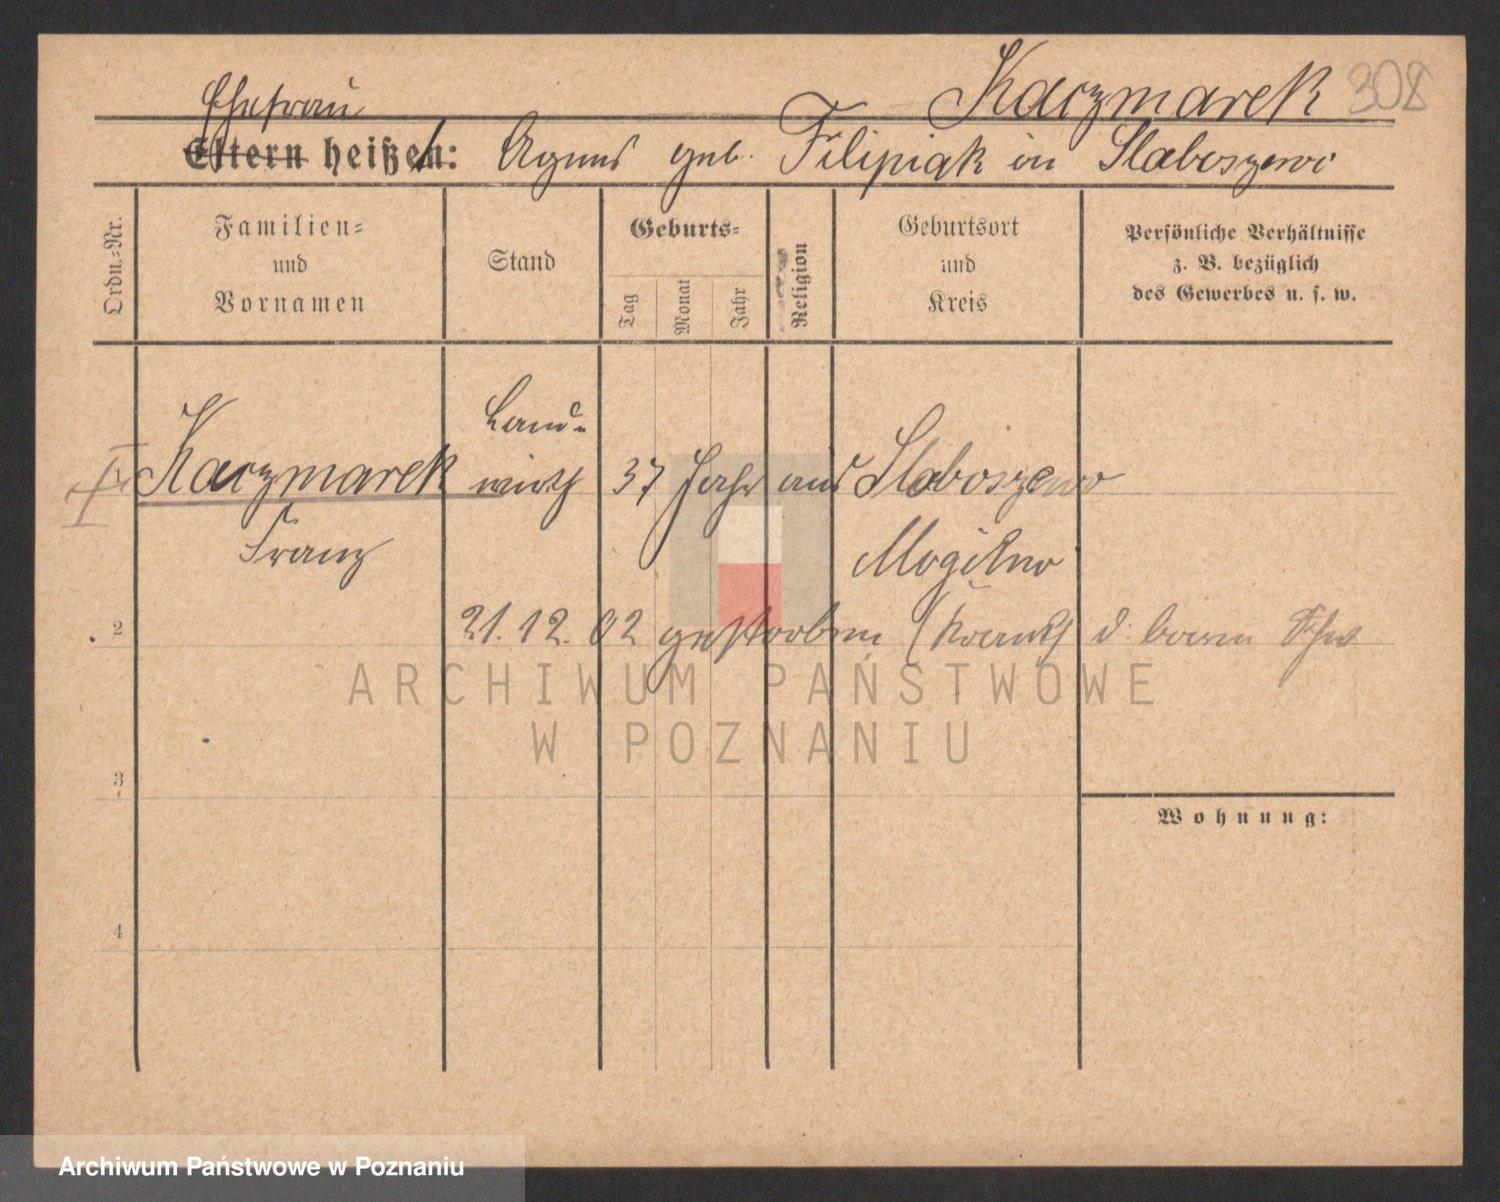 Kaczmarek 308
Ehefrau
Eltern heißen: Agnes geb. Filipiak in Slaboszewo
Ordn.-Nr.
Familien-
und
Vornamen
Stand
Geburts-
Tag
Monat
Jahr
Religion
Geburtsort
und
Kreis
Persönliche Verhältnisse
z. B. bezüglich
des Gewerbes u. s. w.
Land-
Kaczmarek wirth 37 Jahr aus Slaboszewo
Franz Mogilno
2 21.12.02 gestorben
ARCHIWUM PAŃSTWOWE
W POZNANIU
3
Wohnung:
4
Archiwum Państwowe w Poznaniu